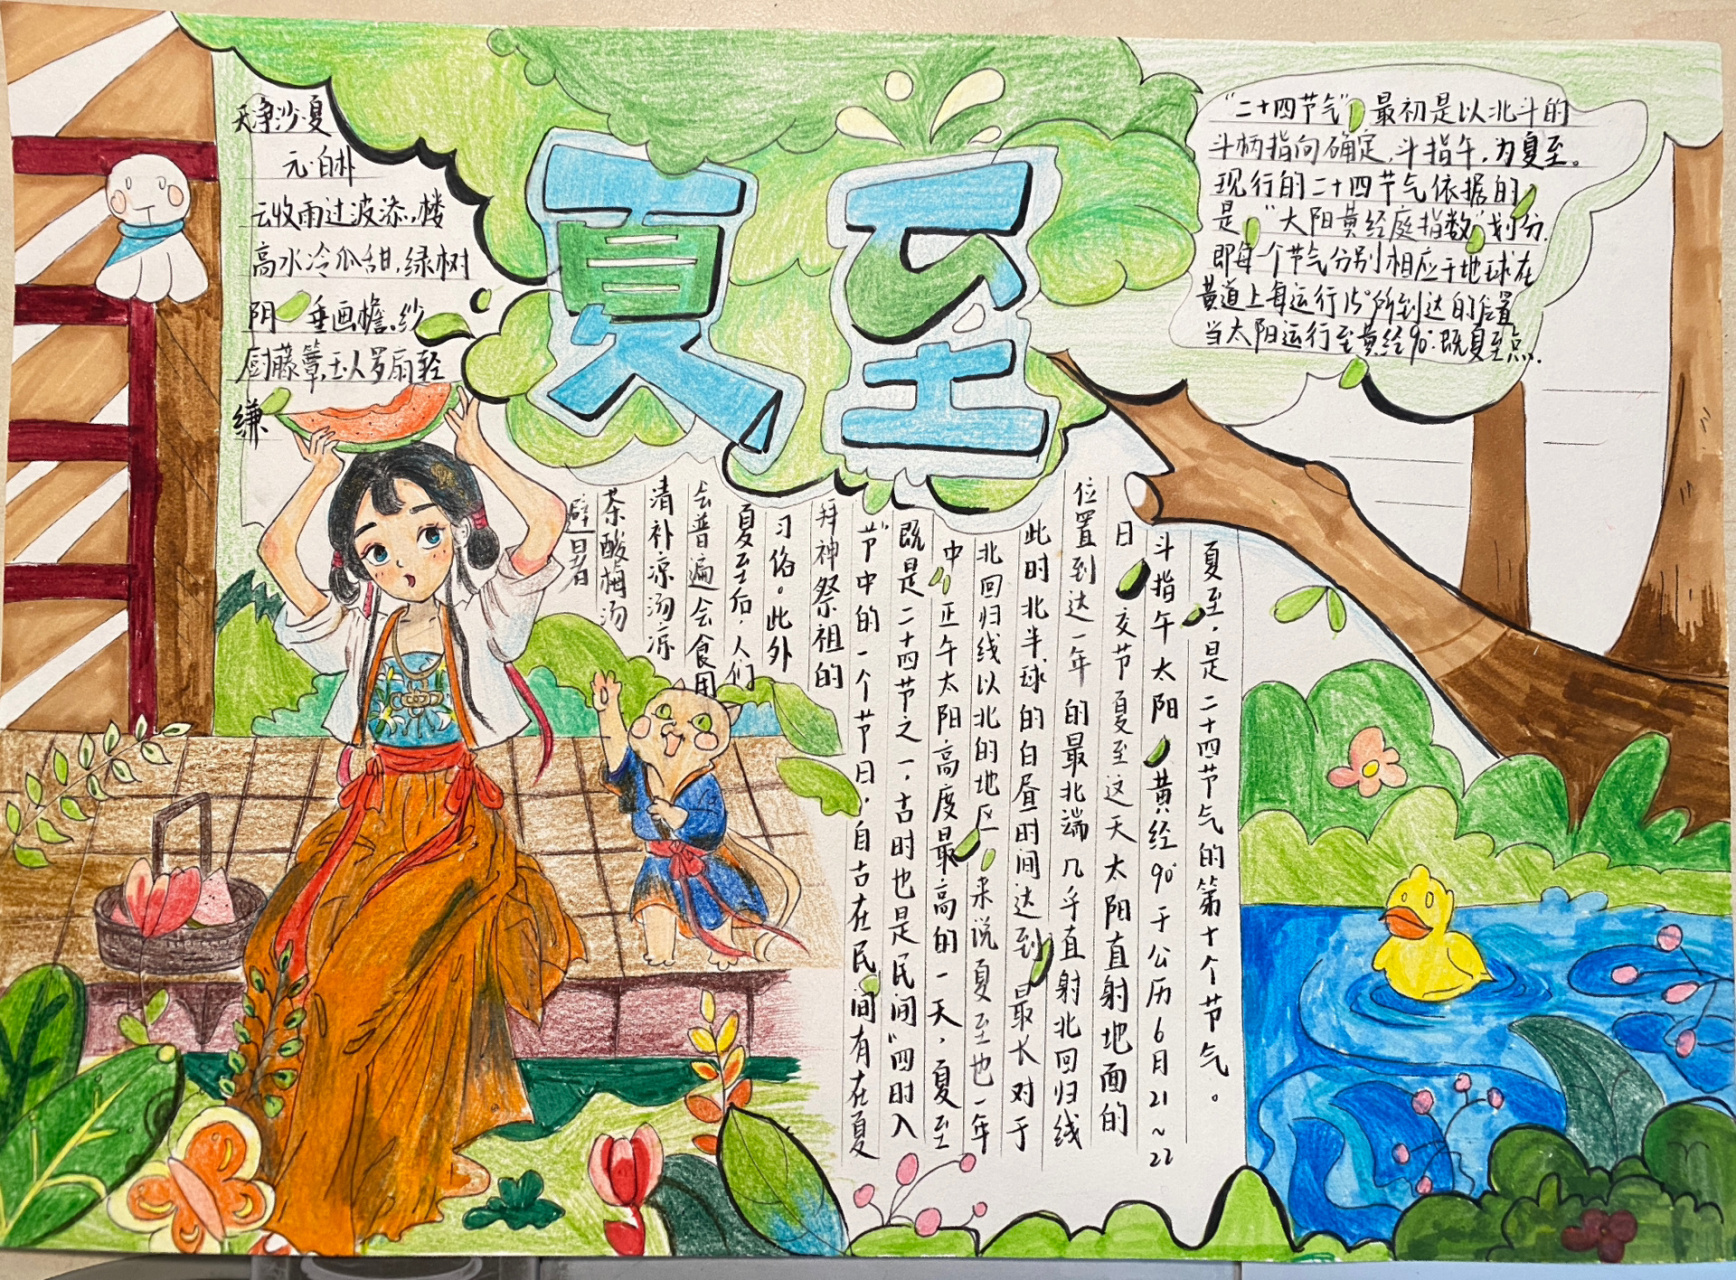 夏至
天净沙·夏
元·白朴
云收雨过波添,楼
高水冷瓜甜,绿树
阴垂画檐,纱
厨藤簟,玉人罗扇轻
缣
“二十四节气”最初是以北斗的
斗柄指向确定,斗指午,为夏至。
现行的二十四节气依据的
是“太阳黄经度指数”划分.
即每个节气分别相应于地球在
黄道上每运行15°所到达的位置
当太阳运行至黄经90°既夏至点.
夏至,是二十四节气的第十个节气。
斗指午太阳黄经90°于公历6月21~22
日交节夏至这天太阳直射地面的
位置到达一年的最北端几乎直射北回归线
此时北半球的白昼时间达到最长对于
北回归线以北的地区来说夏至也一年
中正午太阳高度最高的一天,夏至
既是二十四节之一,古时也是民间“四时入
节”中的一个节日,自古在民间有在夏
拜神祭祖的
习俗。此外
夏至后,人们
会普遍会食用
清补凉汤凉
茶酸梅汤
避暑